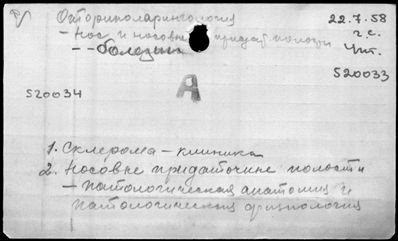 Оториноларингология
22.7.58
– Нос и носовые придат. полости
г.с.
– – болезни
Чит.
520033
А
520034
1. Склерома – клиника
2. Носовые придаточные полости
– патологическая анатомия и
патологическая физиология